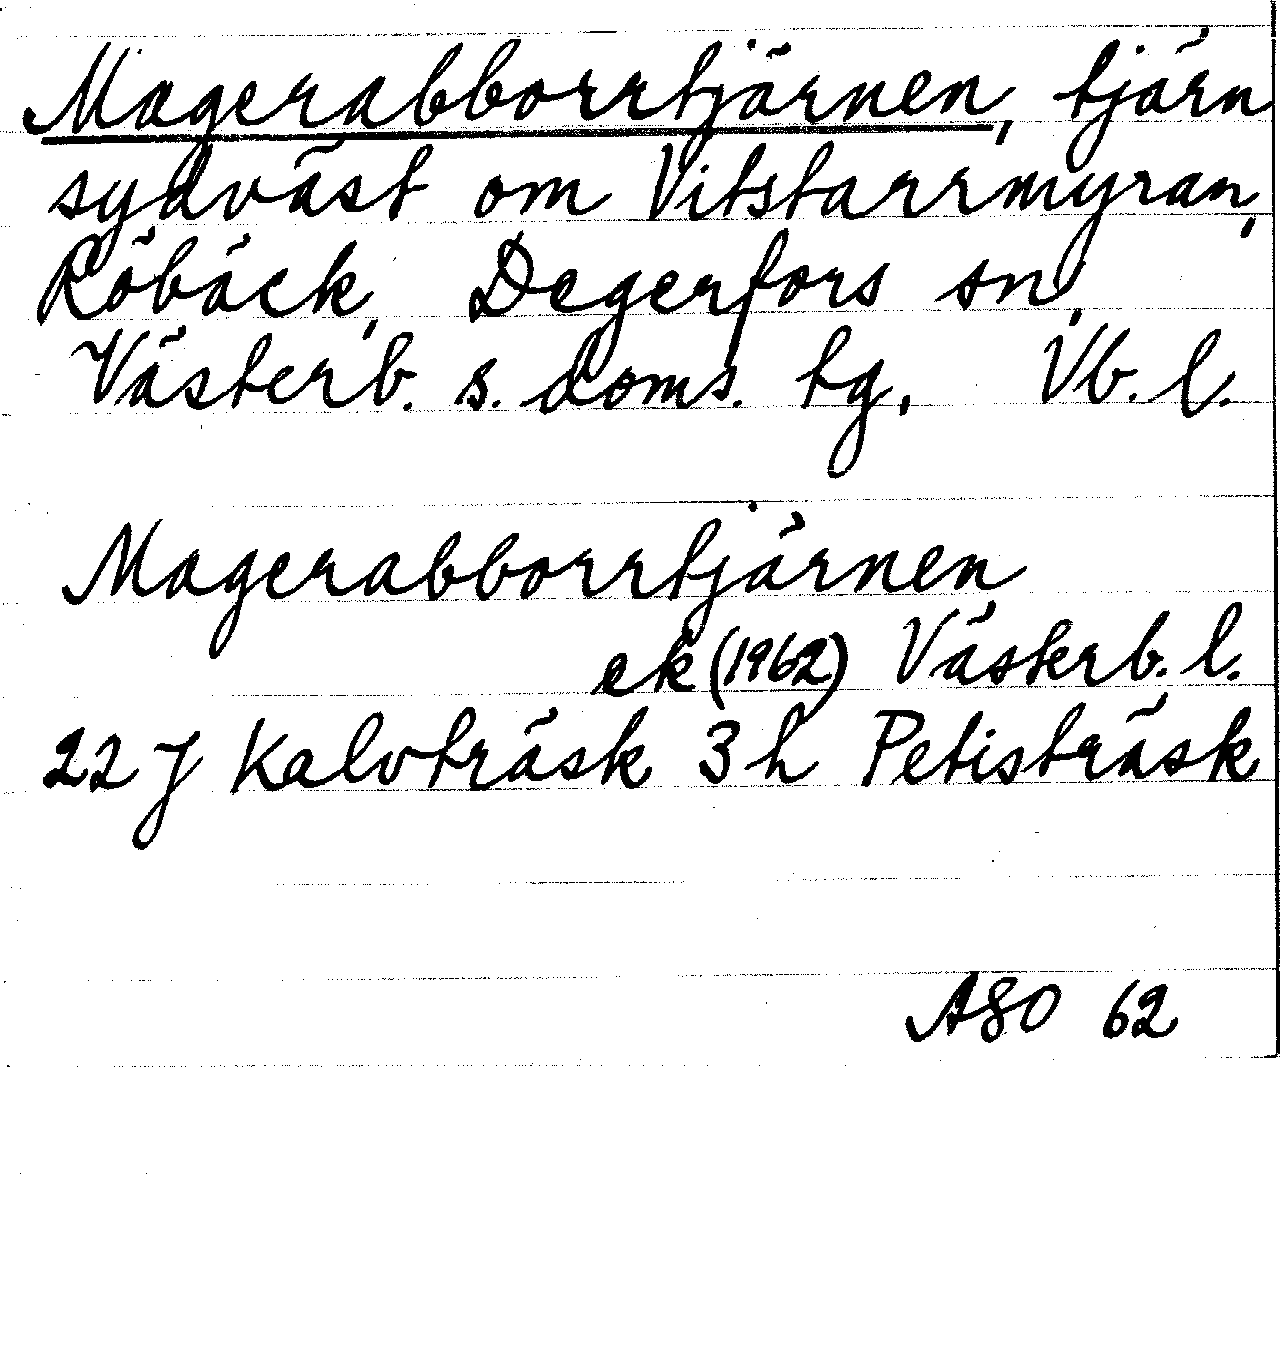 Magerabborrtjärnen, tjärn
sydväst om Vitstarrmyran,
Röbäck, Degerfors sn,
Västerb. s. doms. tg, Vb. l.
Magerabborrtjärnen
ek (1962) Västerb. l.
22 J Kalvträsk 3 h Petisträsk
ASO 62